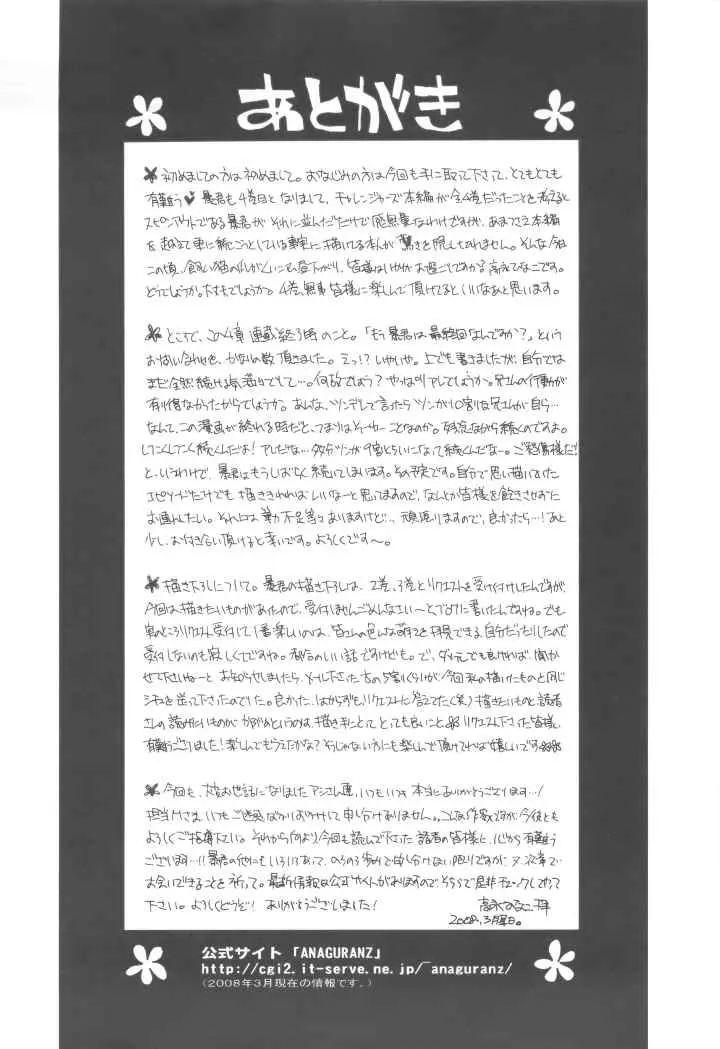 あとがき
初めましての方は初めまして。おなじみの方は今回も手に取って下さって、とてもとても
有難う♥暴君も4巻目となりまして、チャレンジャーズ本編が全4巻だったことを考えると
スピンアウトである暴君が それに並んだだけで感無量なわけですが、あまつさえ本編
を越えて更に続こうとしている事実に描いてる本人が驚きを隠しきれません。そんな今日
この頃、飼い猫の 昼下がり、皆様はいかがお過ごしですか?高永ひなこです。
どうでしょうか。4巻、無事皆様に楽しんで頂けてるといいなあと思います。
ところで、この4章連載終了時のこと。「もう暴君は最終回なんですか?」という
お問い合わせを、かなりの数頂きました。えっ!?いやいや。上でも書きましたが、自分では
まだ全然続ける気満々でして…。何故でしょう?やっぱりアレでしょうか。兄さんの行動が
有り得なかったからでしょうか。あんな、ツンデレって言ったらツンが10割な兄さんが自ら…
なんて、この漫画が終わる時だと、つまりはそーゆーことなのか。残念ながら続くのですよ。
しつこくしつこく続くんだよ!アレだな…多分ツンが9割くらいになって続くんだなー。ご愁傷様だ!
と、いうわけで、暴君はもうしばらく続いてしまいます。その予定です。自分で思い描いていた
エピソードだけでも 描ききれればいいなーと思ってますので、なんとか皆様を飽きさせずに
お連れしたい。それには力不足等々ありますけど…、頑張りますので、良かったら…!あと
少し、お付き合い頂けると幸いです。よろしくです〜。
描き下ろしについて。暴君の描き下ろしは、2巻、3巻とリクエストを受け付けしたんですが、
今回は描きたいものがあったので、受付しませんごめんなさい〜とブログに書いたんですね。でも
実のところリクエスト受付して1番楽しいのは、皆さんの色んな萌えを拝見できる自分だったりしたので
受付しないのも寂しくてですね。都合のいい話ですけども。で、ダメ元でも良ければ、聞かせ
せて下さいねーと お知らせしましたら、メール下さった方の5割くらいが、今回私の描いたものと同じ
シチュを送って下さったのでした。良かった、はからずもリクエストに答えてた(笑)描きたいものと読者
さんの読みたいものが かぶるというのは、描き手にとって とても良いこと。リクエスト下さった皆様、
有難うございました!楽しんでもらえたかな?そうじゃない方にも楽しんで頂けてれば嬉しいです
今回も、大変お世話になりましたアシさん達、いつもいつも本当にありがとうございます…!
担当Mさま、いつもご迷惑ばかりおかけして申し訳ありません。こんな作家ですが今後とも
よろしくご指導下さい。それから何より今回も読んで下さった読者の皆様に、心から有難う
ございます…!!暴君の他にもいろいろあって、のろのろ歩みで申し訳ない限りですが、又、次巻で
お会いできることを祈って。最新情報は公式サイトがありますので、そちらで是非チェックしてみて
下さい。よろしくどうぞ!ありがとうございました!
高永ひなこ 拝
2008.3月
公式サイト「ANAGURANZ」
http://cgi2.it-serve.ne.jp/~anaguranz/
(2008年3月現在の情報です。)